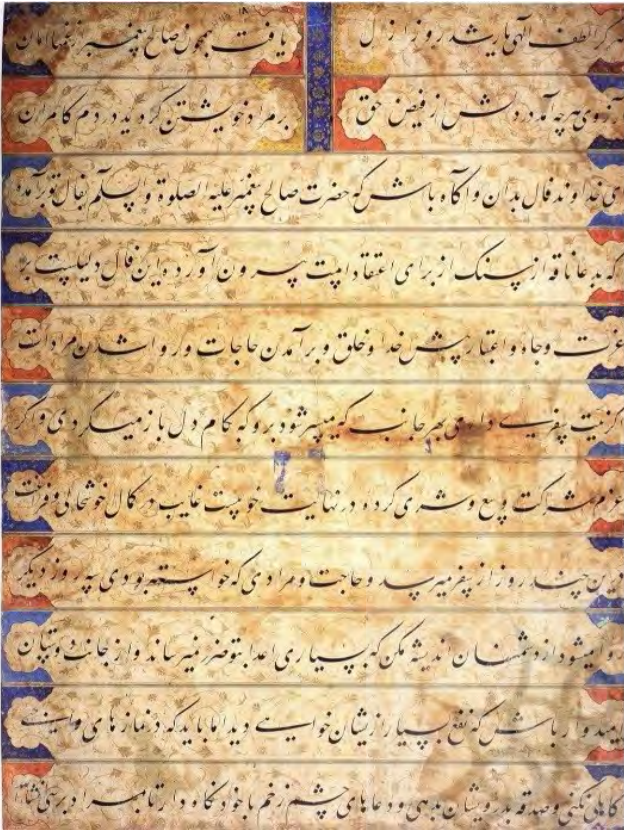 هر کرا لطف الهی یار شد روز ازل یافت همچون صالح پیغمبر از غمها امان
آرزوی هر چه آمد در دلش از فیض حق بر مراد خویشتن گردید در دم کامران
ای خداوند فال بدان و آگاه باش که حضرت صالح پیغمبر علیه الصلوة والسلم بفال تو برآمده
که بدعا ناقه از سنک از برای اعتقاد امت بیرون آورده این فال دلیلست بر
عزت وجاه و اعتبار پیش خدا و خلق و برآمدن حاجات و روا شدن مرادات
اگر نیت سفری داری بهر جانب که میسر شود برو که کام دل باز میکردی و اگر
عزم شرکت و بیع و شری کرده در نهایت خوبیست غایب در کمال خوشحالی و فراغت
درین چند روز از سفر میرسد و حاجت و مرادی که خواسته بودی سه روز دیگر
روا میشود از دشمنان اندیشه مکن که بسیاری اعدا بتو ضرر نمیرساند و از جانب دوستان
امیدوار باش که نفع بسیار ازیشان خواهی دید اما باید که در نمازهای
کاهلی نکنی و صدقه بدرویشان بدهی و دعاهای چشم زخم با خود نکاه دار تا بمراد برسی